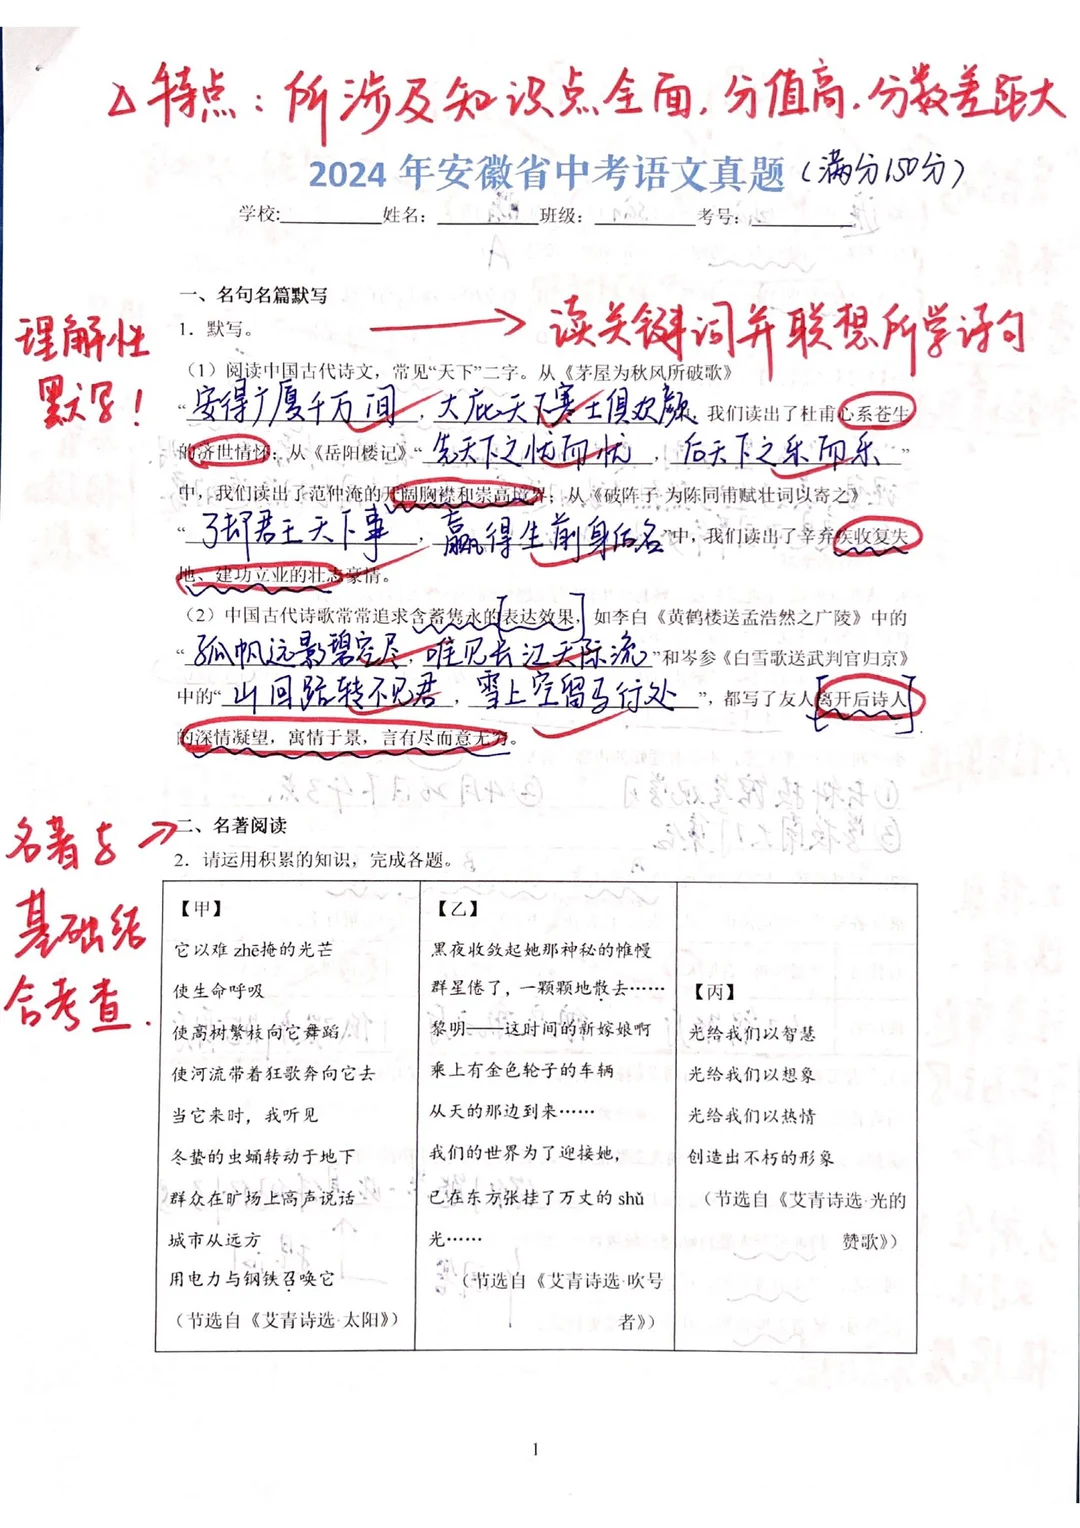 △特点：所涉及知识点全面，分值高，分数差距大
2024 年安徽省中考语文真题（满分150分）
学校:__________姓名：__________班级：__________考号：__________
一、名句名篇默写
理解性
默写！
1．默写。 → 读关键词并联想所学诗句
（1）阅读中国古代诗文，常见“天下”二字。从《茅屋为秋风所破歌》
“安得广厦千万间，大庇天下寒士俱欢颜，我们读出了杜甫心系苍生
的济世情怀；从《岳阳楼记》“先天下之忧而忧，后天下之乐而乐”
中，我们读出了范仲淹的开阔胸襟和崇高境界；从《破阵子·为陈同甫赋壮词以寄之》
“了却君王天下事，赢得生前身后名”中，我们读出了辛弃疾收复失
地、建功立业的壮志豪情。
（2）中国古代诗歌常常追求含蓄隽永的表达效果，如李白《黄鹤楼送孟浩然之广陵》中的
“孤帆远影碧空尽，唯见长江天际流”和岑参《白雪歌送武判官归京》
中的“山回路转不见君，雪上空留马行处”，都写了友人离开后诗人
的深情凝望，寓情于景，言有尽而意无穷。
名著与
基础结
合考查．
二、名著阅读
2．请运用积累的知识，完成各题。
【甲】
它以难 zhē掩的光芒
使生命呼吸
使高树繁枝向它舞蹈
使河流带着狂歌奔向它去
当它来时，我听见
冬蛰的虫蛹转动于地下
群众在旷场上高声说话
城市从远方
用电力与钢铁召唤它
（节选自《艾青诗选·太阳》）
【乙】
黑夜收敛起她那神秘的帷幔
群星倦了，一颗颗地散去……
黎明——这时间的新嫁娘啊
乘上有金色轮子的车辆
从天的那边到来……
我们的世界为了迎接她，
已在东方张挂了万丈的 shǔ
光……
（节选自《艾青诗选·吹号
者》）
【丙】
光给我们以智慧
光给我们以想象
光给我们以热情
创造出不朽的形象
（节选自《艾青诗选·光的
赞歌》）
1